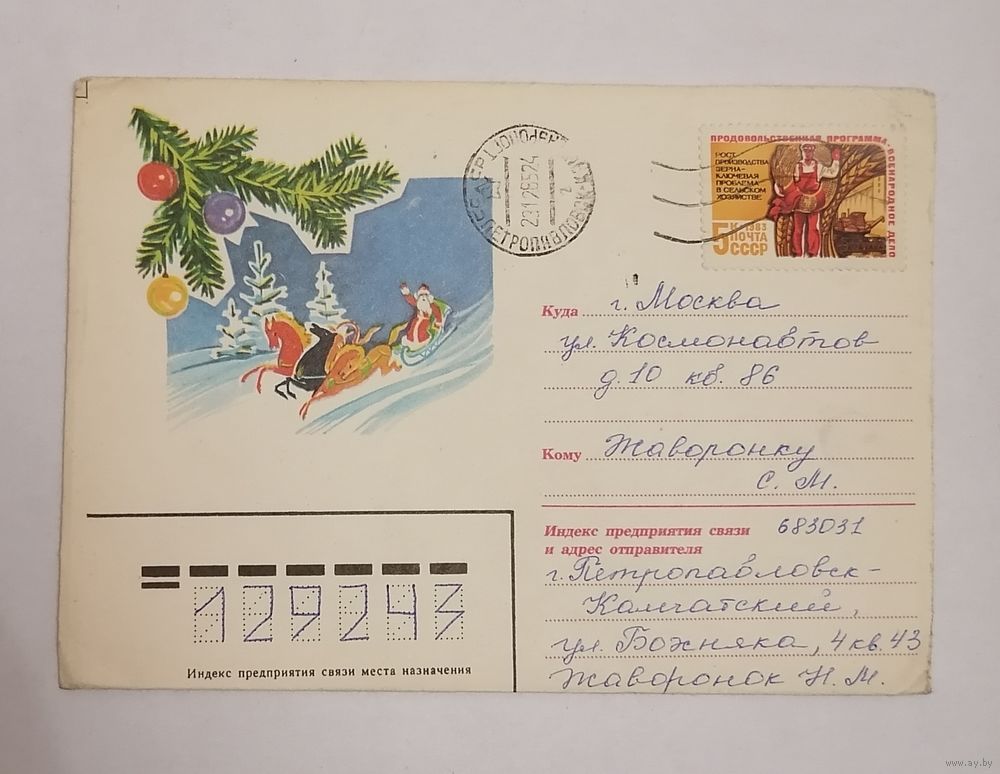 ПРОДОВОЛЬСТВЕННАЯ ПРОГРАММА - ВСЕНАРОДНОЕ ДЕЛО
РОСТ
ПРОИЗВОДСТВА
ЗЕРНА-
КЛЮЧЕВАЯ
ПРОБЛЕМА
В СЕЛЬСКОМ
ХОЗЯЙСТВЕ
5К 1983
ПОЧТА
СССР
Куда г. Москва
ул. Космонавтов
д. 10 кв. 86
Кому Жаворонку
С. М.
Индекс предприятия связи 683031
и адрес отправителя
г. Петропавловск-
Камчатский,
ул. Божняка, 4 кв. 43
Жаворонок Н. М.
129243
Индекс предприятия связи места назначения
www.ay.by